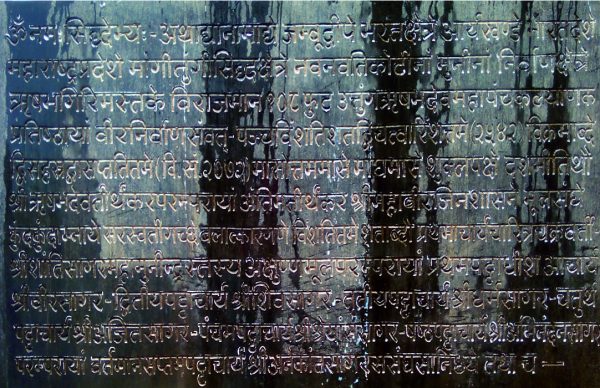 ॐ नमः सिद्धेभ्यः-अथाद्यानामाद्ये जम्बूद्वीपे भरतक्षेत्रे आर्यखण्डे भारतदेशे
महाराष्ट्रप्रदेशे मांगीतुंगीसिद्धक्षेत्रे नवनवतिकोटीनां मुनीनां निर्वाणक्षेत्रे
ऋषभगिरिमस्तके विराजमान १०८ फुट उत्तुंगऋषभदेवमहापंचकल्याणक
प्रतिष्ठायां वीरनिर्वाणसंवत्-पञ्चविंशतिशतद्विचत्वारिंशत्तमे (२५४२) विक्रमाब्दे
द्विसहस्रद्वासप्ततितमे (वि.सं.२०७२) मासोत्तममासे माघमासे शुक्लपक्षे दशमीतिथौ
श्रीऋषभदेवतीर्थंकरपरम्परायां अंतिमतीर्थंकर श्रीमहावीरजिनशासने मूलसंघे
कुंदकुंदाम्नाये सरस्वतीगच्छे बलात्कारगणे विंशतितमे शताब्दौ प्रथमाचार्यचारित्रचक्रवर्ती
श्रीशांतिसागरमहामुनीन्द्रस्तस्य अक्षुण्णमूलपरम्परायां प्रथमपट्टाधीश आचार्य
श्रीवीरसागर-द्वितीयपट्टाचार्य श्रीशिवसागर-तृतीयपट्टाचार्य श्रीधर्मसागर-चतुर्थ
पट्टाचार्य श्रीअजितसागर-पंचमपट्टाचार्य श्रीश्रेयांससागर-षष्ठपट्टाचार्य श्रीअभिनंदनसागर
परम्परायां वर्तमानसप्तमपट्टाचार्य श्रीअनेकांतसागरससंघसानिध्ये तथा च —